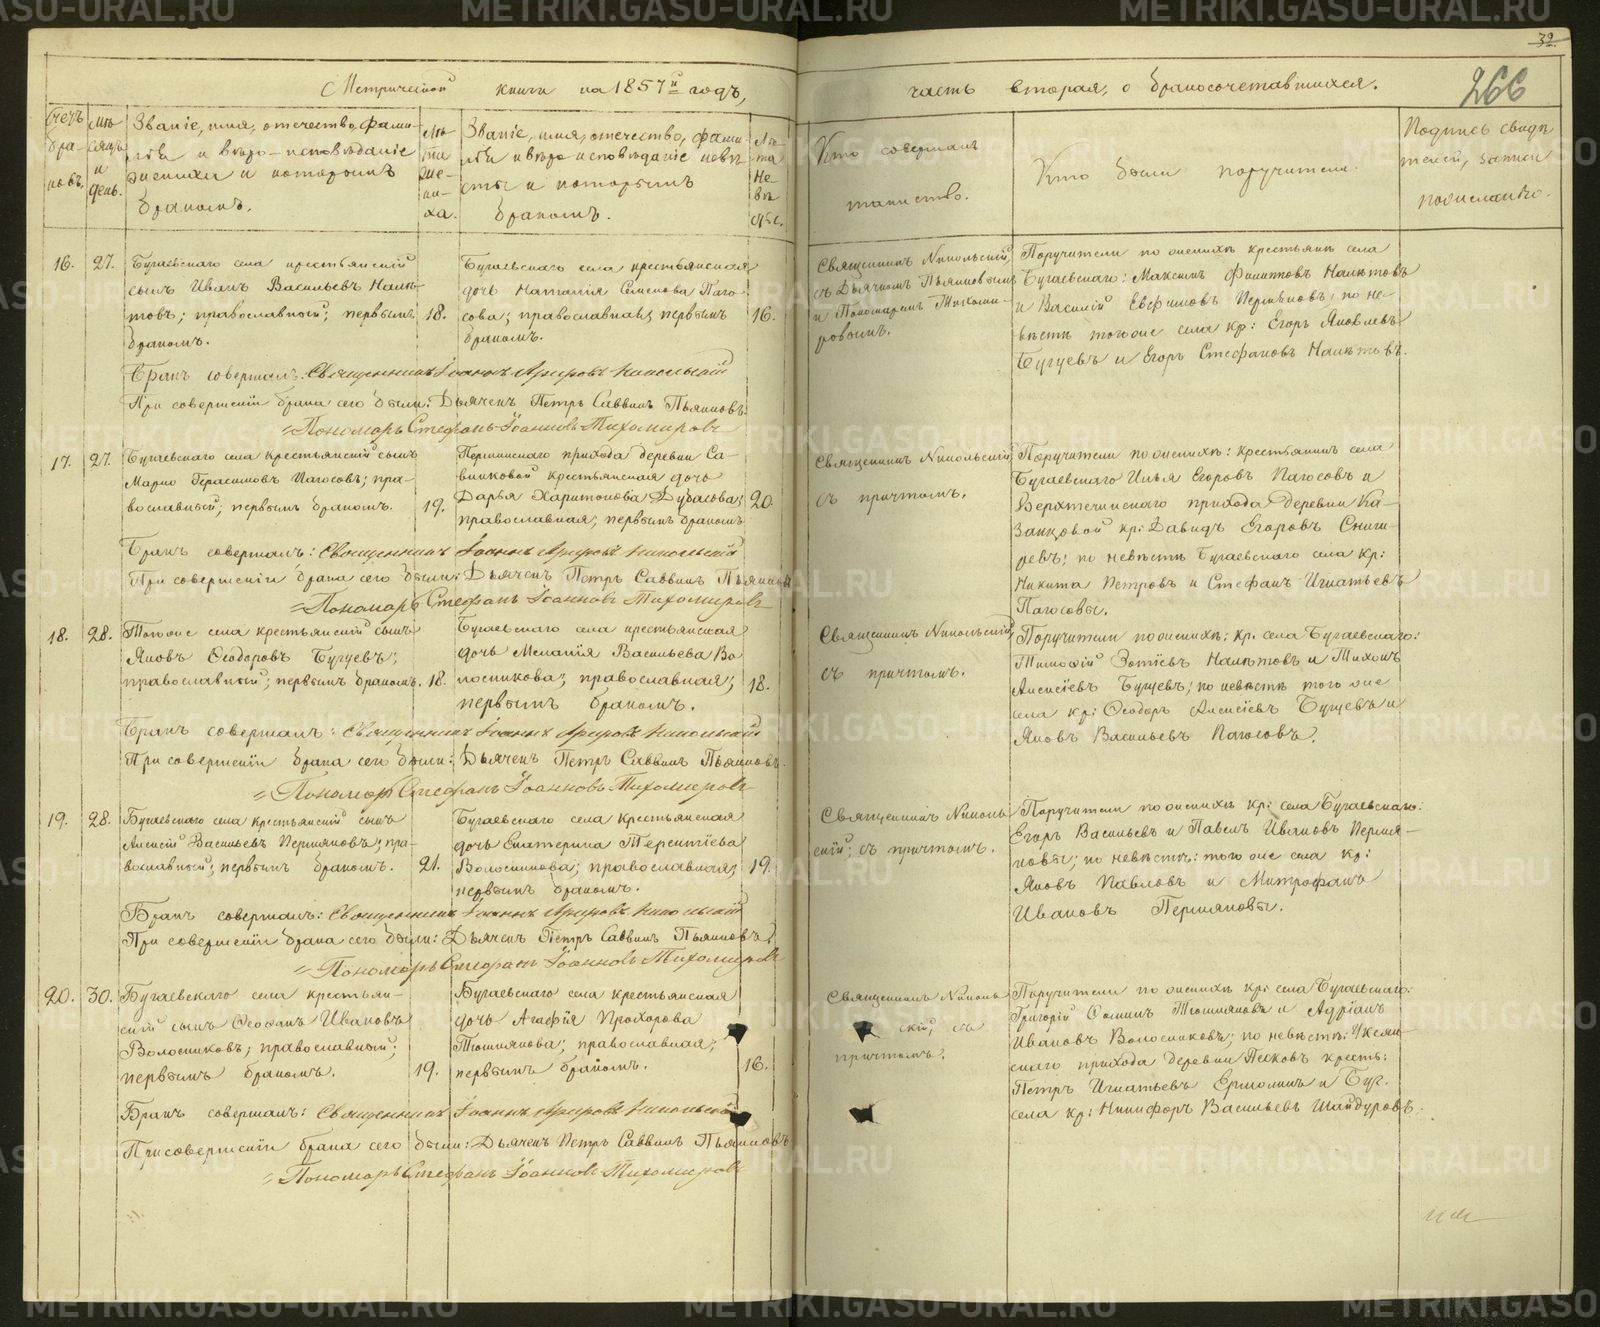 METRIKI.GASO-URAL.RU
Метрической книги на 1857й годъ,
Счетъ браковъ.
Мѣсяцъ и день.
Званіе, имя, отечество, фами-
лія и вѣро-исповѣданіе
жениха и которымъ
бракомъ.
Лѣта жениха.
Званіе, имя, отечество, фами-
лія и вѣро исповѣданіе невѣ-
сты и которымъ
бракомъ.
Лѣта невѣсты.
16. 27.
Бугаевскаго села крестьянскій
сынъ Иванъ Васильевъ Налѣ-
товъ; православный; первымъ 18.
бракомъ.
Бугаевскаго села крестьянская
дочь Наталія Семенова Паго-
сова; православная; первымъ 16.
бракомъ.
Бракъ совершалъ: Священникъ Іоаннъ Арефовъ Никольскій
При совершеніи брака сего были: Дьячекъ Петръ Саввинъ Пьянковъ.
" Пономарь Стефанъ Іоанновъ Тихомировъ
17. 27.
Бугаевскаго села крестьянскій сынъ
Марко Герасимовъ Пагосовъ; пра-
вославный; первымъ бракомъ. 19.
Першинскаго прихода деревни Са-
винковой крестьянская дочь
Дарья Харитонова Дубасова; 20.
православная; первымъ бракомъ
Бракъ совершалъ: Священникъ Іоаннъ Арефовъ Никольскій
При совершеніи брака сего были: Дьячекъ Петръ Саввинъ Пьянковъ
" Пономарь Стефанъ Іоанновъ Тихомировъ
18. 28.
Тогоже села крестьянскій сынъ
Яковъ Ѳеодоровъ Бугуевъ;
православный; первымъ бракомъ. 18.
Бугаевскаго села крестьянская
дочь Меланія Васильева Во
лосникова; православная; 18.
первымъ бракомъ.
Бракъ совершалъ: Священникъ Іоаннъ Арефовъ Никольскій
При совершеніи брака сего были: Дьячекъ Петръ Саввинъ Пьянковъ.
" Пономарь Стефанъ Іоанновъ Тихомировъ
19. 28.
Бугаевскаго села крестьянскій сынъ
Алексій Васильевъ Першяковъ; пра-
вославный; первымъ бракомъ. 21.
Бугаевскаго села крестьянская
дочь Екатерина Терентіева
Волосникова; православная; 19.
первымъ бракомъ.
Бракъ совершалъ: Священникъ Іоаннъ Арефовъ Никольскій
При совершеніи брака сего были: Дьячекъ Петръ Саввинъ Пьянковъ.
" Пономарь Стефанъ Іоанновъ Тихомировъ
20. 30.
Бугаевскаго села крестьян-
скій сынъ Ѳеофанъ Ивановъ
Волосниковъ; православный;
первымъ бракомъ. 19.
Бугаевскаго села крестьянская
дочь Агафія Прохорова
Тюшнякова; православная;
первымъ бракомъ. 16.
Бракъ совершалъ: Священникъ Іоаннъ Арефовъ Никольскій
При совершеніи брака сего были: Дьячекъ Петръ Саввинъ Пьянковъ
" Пономарь Стефанъ Іоанновъ Тихомировъ
39
266
часть вторая, о бракосочетавшихся.
Кто совершалъ
таинство.
Кто были поручители.
Подпись свидѣ
телей, записи
по желанію.
Священникъ Никольскій,
съ Дьячкомъ Пьянковымъ
и Пономаремъ Тихоми-
ровымъ.
Поручители по женихѣ крестьяне села
Бугаевскаго: Максимъ Филиповъ Налѣтовъ
и Василій Евфимовъ Першяковъ; по не-
вѣстѣ тогоже села кр: Егоръ Яковлевъ
Бугуевъ и Егоръ Стефановъ Налѣтовъ.
Священникъ Никольскій
съ причтомъ.
Поручители по женихѣ: крестьянинъ села
Бугаевскаго Илья Егоровъ Пагосовъ и
Верхтечинскаго прихода деревни Ка-
занцовой кр: Давидъ Егоровъ Сниги-
ревъ; по невѣстѣ Бугаевскаго села кр:
Никита Петровъ и Стефанъ Игнатьевъ
Пагосовы.
Священникъ Никольскій
съ причтомъ.
Поручители по женихѣ: кр: села Бугаевскаго:
Тимофій Зотіевъ Налѣтовъ и Тихонъ
Алексіевъ Бугуевъ; по невѣстѣ того же
села кр: Ѳеодоръ Алексіевъ Бугуевъ и
Яковъ Васильевъ Пагосовъ.
Священникъ Николь
скій; съ причтомъ.
Поручители по женихѣ кр: села Бугаевскаго:
Егоръ Васильевъ и Павелъ Ивановъ Першя-
ковы; по невѣстѣ: того же села кр:
Яковъ Павловъ и Митрофанъ
Ивановъ Першяковы.
Священникъ Николь
скій; съ
причтомъ.
Поручители по женихѣ кр: села Бугаевскаго:
Григорій Ѳоминъ Тюшняковъ и Адріанъ
Ивановъ Волосниковъ; по невѣстѣ:
скаго прихода деревни Песковъ кресть:
Петръ Игнатьевъ Ермолинъ и Буг.
села кр: Никифоръ Васильевъ Шайдуровъ.